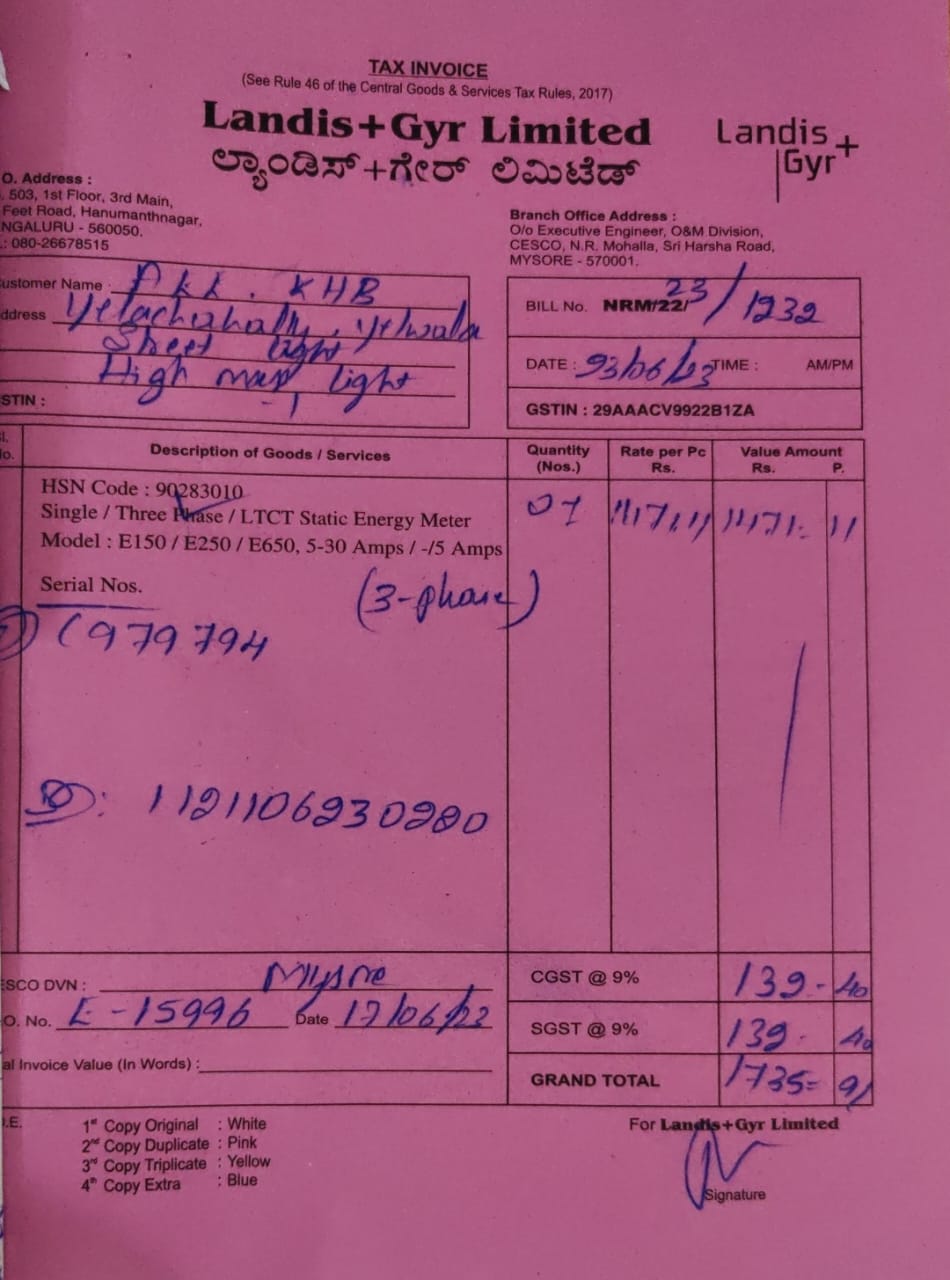 TAX INVOICE
(See Rule 46 of the Central Goods & Services Tax Rules, 2017)
Landis+Gyr Limited
ಲ್ಯಾಂಡಿಸ್+ಗೇರ್ ಲಿಮಿಟೆಡ್
Landis+
Gyr
O. Address :
. 503, 1st Floor, 3rd Main,
Feet Road, Hanumanthnagar,
NGALURU - 560050.
.: 080-26678515
Branch Office Address :
O/o Executive Engineer, O&M Division,
CESCO, N.R. Mohalla, Sri Harsha Road,
MYSORE - 570001.
ustomer Name : KHB
ddress Yelachahally, Yelwala
Street light
High mast light
STIN :
BILL No. NRM/22/23/1232
DATE : 23/06/23 TIME : AM/PM
GSTIN : 29AAACV9922B1ZA
l.
o.
Description of Goods / Services
Quantity
(Nos.)
Rate per Pc
Rs.
Value Amount
Rs. P.
HSN Code : 90283010
Single / Three Phase / LTCT Static Energy Meter
Model : E150 / E250 / E650, 5-30 Amps / -/5 Amps
01
Serial Nos.
(3-phase)
979794
1121106230280
ESCO DVN : Mysore
O. No. E-15996 Date 17/06/23
al Invoice Value (In Words) :
CGST @ 9% 139-40
SGST @ 9% 139- 40
GRAND TOTAL 1735= 91
.E.
1st Copy Original : White
2nd Copy Duplicate : Pink
3rd Copy Triplicate : Yellow
4th Copy Extra : Blue
For Landis+Gyr Limited
Signature